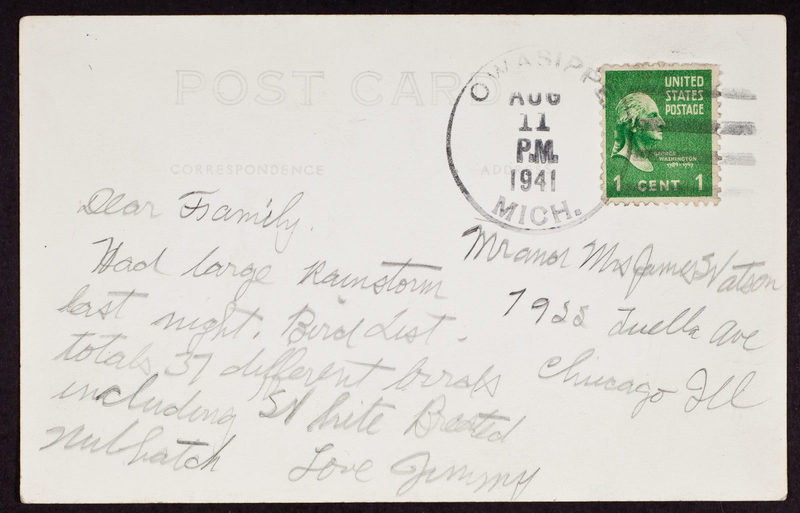 POST CARD
CORRESPONDENCE
OWASIPPE
AUG
11
P.M.
1941
MICH.
UNITED
STATES
POSTAGE
GEORGE
WASHINGTON
1789-1797
1 CENT 1
Dear Family.
Had large Rainstorm
last night. Bird List.
totals 37 different birds
including White Breasted
Nuthatch
Love Jimmy
Mr and Mrs James Watson
7922 Luella Ave
Chicago Ill